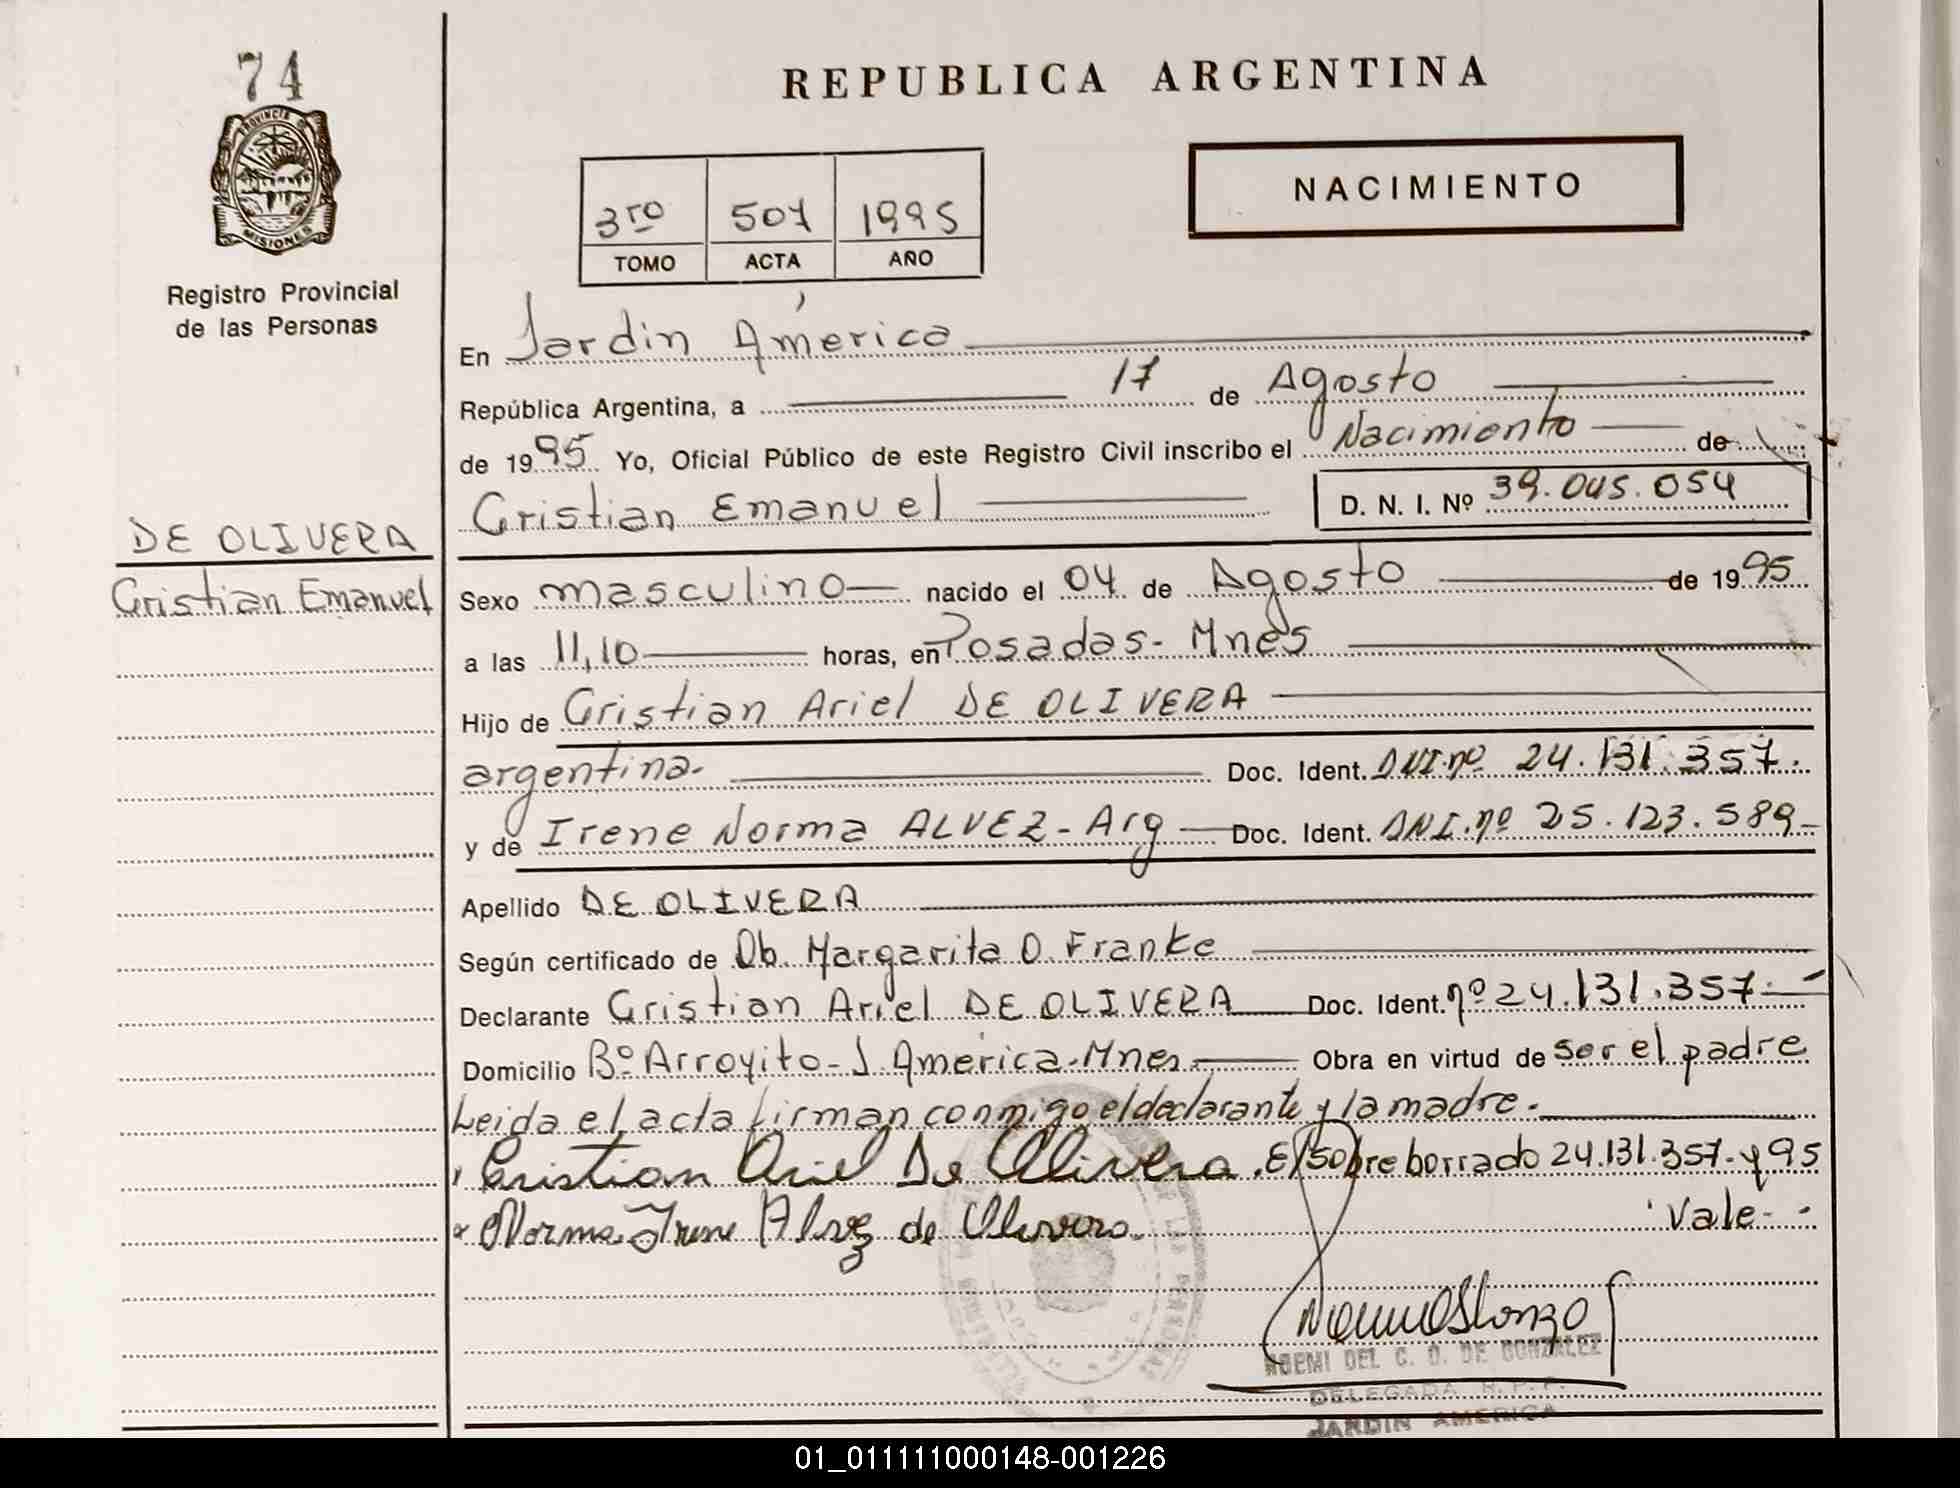 74
PROVINCIA D
MISIONES
Registro Provincial
de las Personas
REPUBLICA ARGENTINA
NACIMIENTO
3ro 507 1995
TOMO ACTA AÑO
En Jardin América
República Argentina, a 17 de Agosto
de 1995 Yo, Oficial Público de este Registro Civil inscribo el Nacimiento de
Cristian Emanuel D. N. I. Nº 39.045.054
DE OLIVERA
Cristian Emanuel
Sexo masculino nacido el 04 de Agosto de 1995
a las 11,10 horas, en Posadas - Mnes
Hijo de Cristian Ariel DE OLIVERA
argentina. Doc. Ident. DNI.nº 24.131.357.
y de Irene Norma ALVEZ - Arg Doc. Ident. DNI.nº 25.123.589
Apellido DE OLIVERA
Según certificado de Ob. Margarita O. Franke
Declarante Cristian Ariel DE OLIVERA Doc. Ident. nº 24.131.357.
Domicilio Bº Arroyito - J. América - Mnes Obra en virtud de ser el padre
Leida el acta firman conmigo el declarante y la madre.
Cristian Ariel De Olivera. E/sobre borrado 24.131.357 - y 95
Norma Irene Alvez de Olivera. Vale -
NOEMI DEL C. O. DE GONZALEZ
DELEGADA R. P. P.
JARDIN AMERICA
01_011111000148-001226